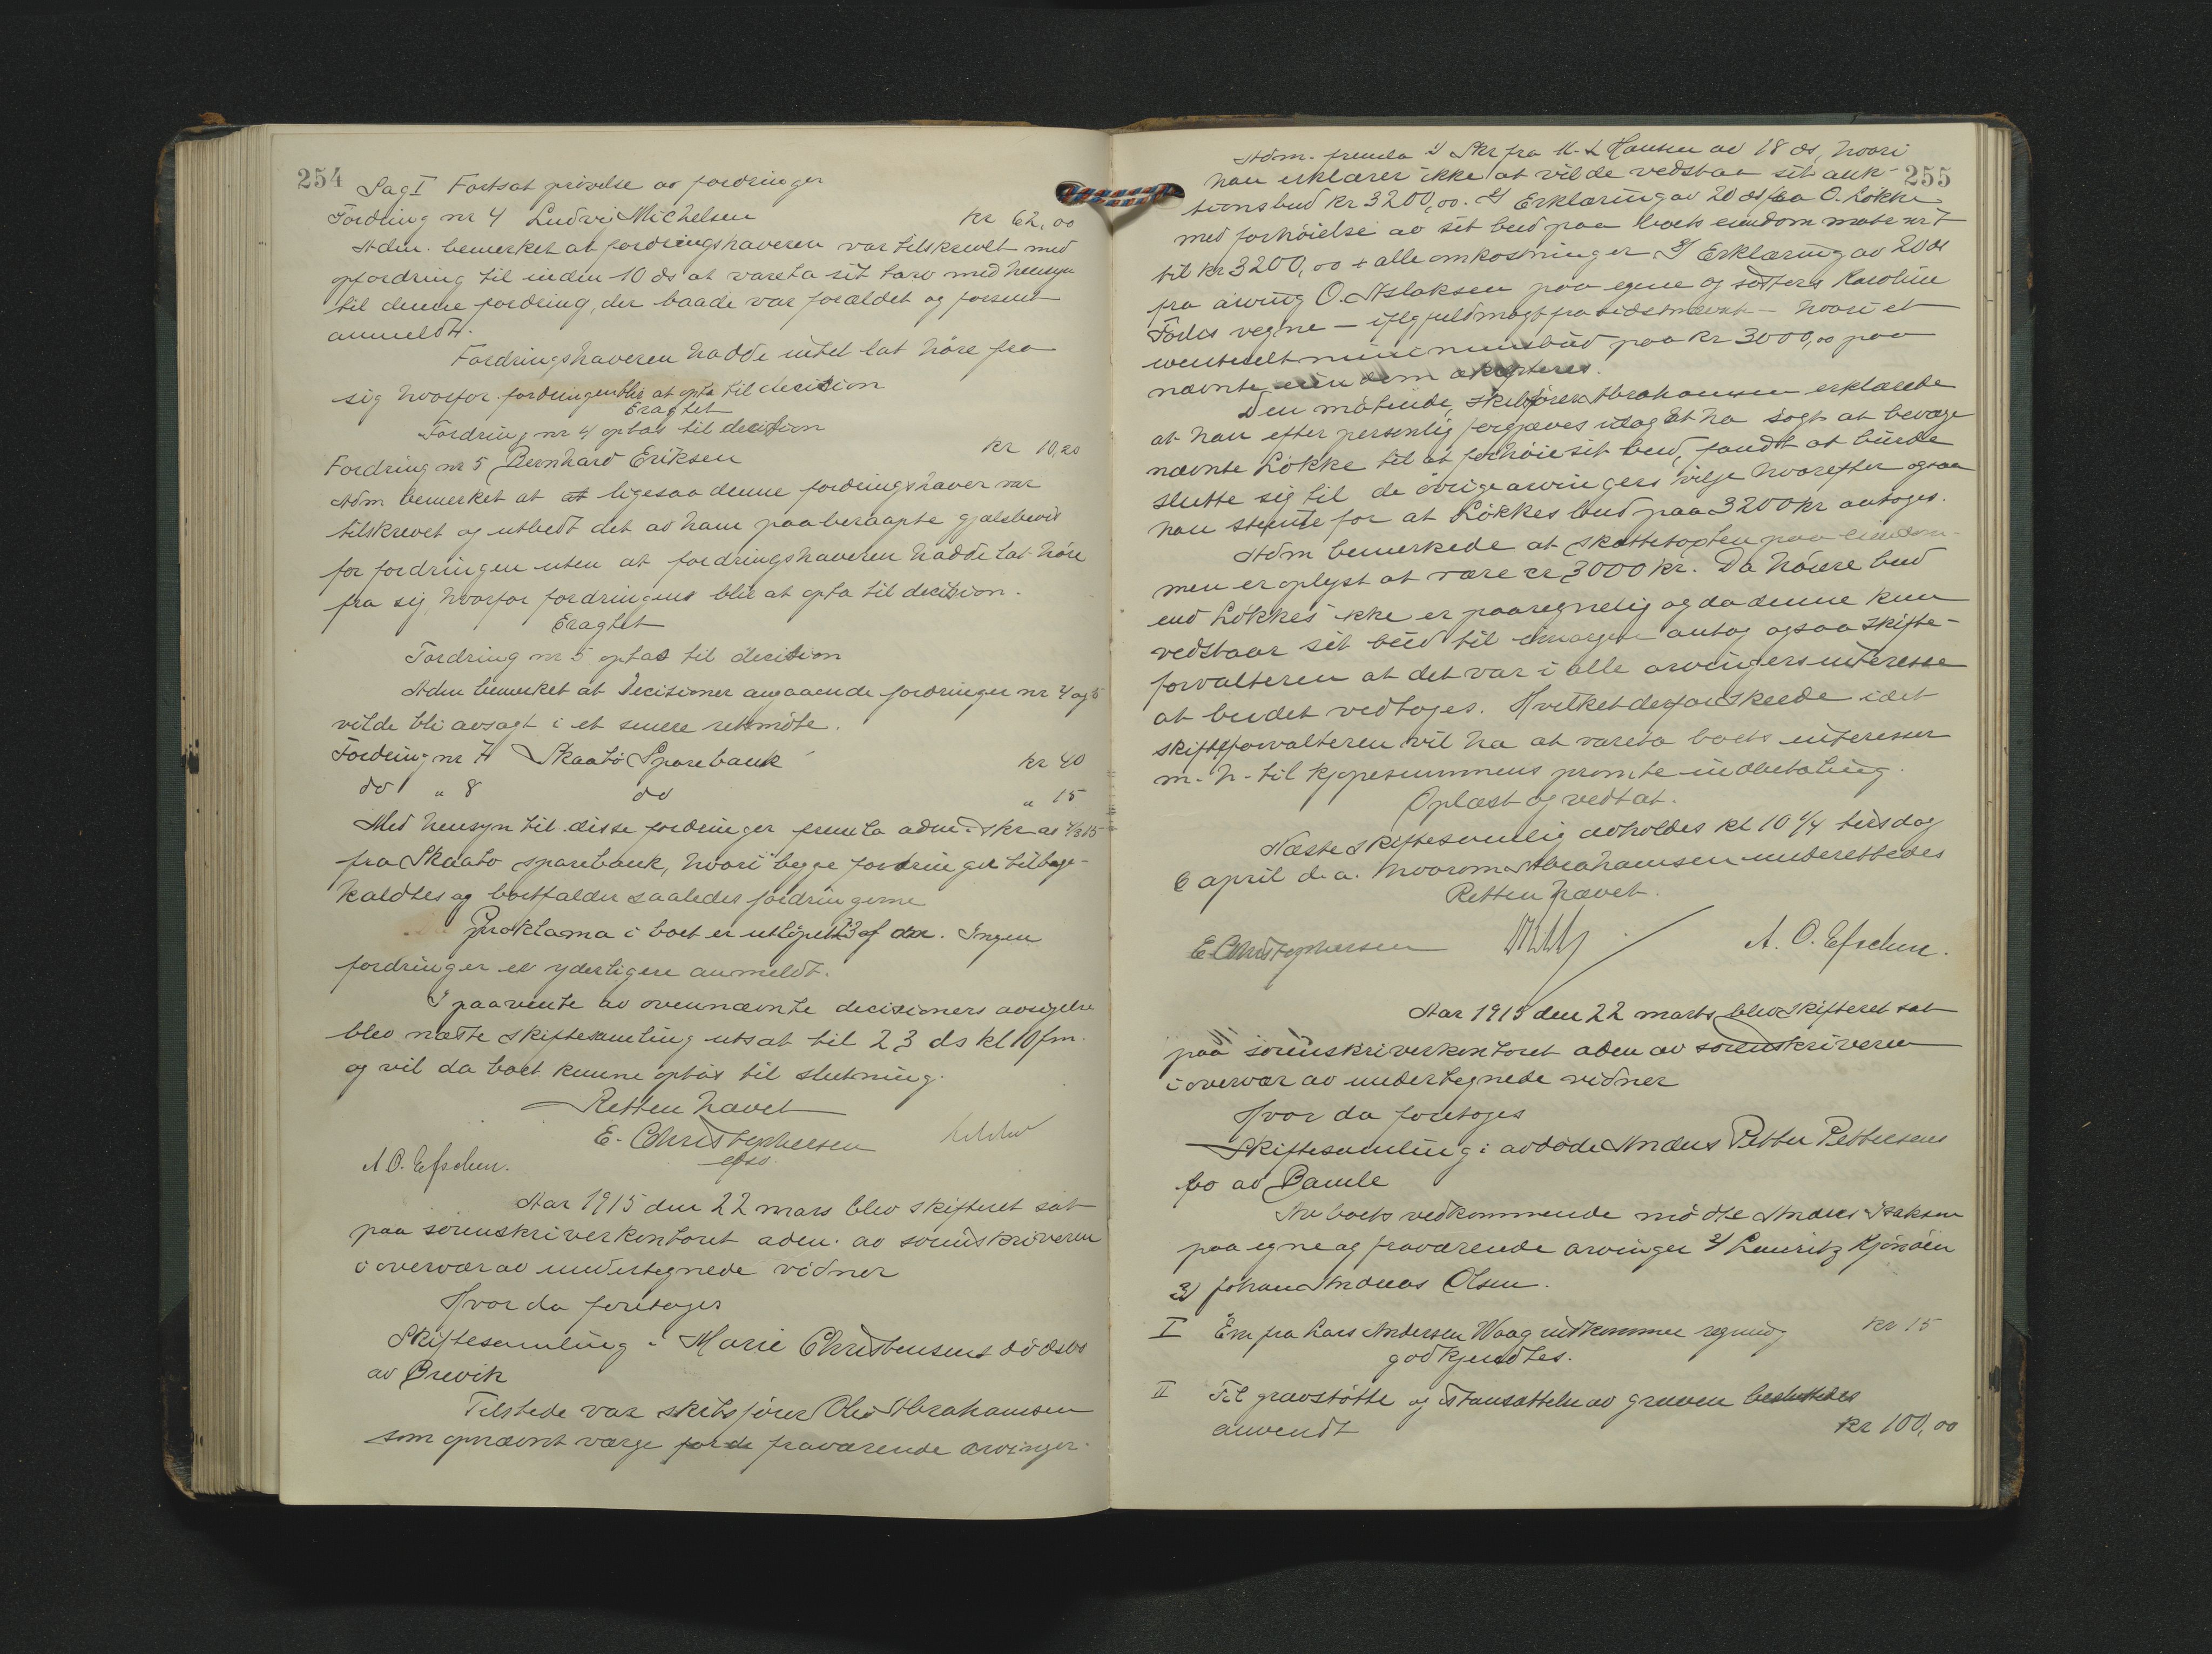 254
Sag I Fortsat prövelse av fordringer
Fordring nr 4 Ludvi Michelsen kr 62,00
Adm. bemerket at fordringshaveren var tilskrevet med
opfordring til inden 10 ds at vareta sit tarv med hensyn
til denne fordring, der baade var forældet og forsent
anmeldt.
Fordringshaveren hadde intet lat höre fra
sig hvorfor fordringen blir at opta til decision
Eragtet
Fordring nr 4 optas til decision
Fordring nr 5 Bernhard Eriksen kr 10,20
Adm bemerket at at ligesaa denne fordringshaver var
tilskrevet og utbedt det av ham paaberaapte gjælsbevis
for fordringen uten at fordringshaveren hadde lat höre
fra sig, hvorfor fordringens blir at opta til decision.
Eragtet
Fordring nr 5 optas til decision
Adm bemerket at decisioner angaaende fordringer nr 4 og 5
vilde bli avsagt i et senere retsmöte.
Fordring nr 7 Skaatö Sparebank kr 40
do " 8 do " 15
Med hensyn til disse fordringer fremla adm. skr av 4/3 15
fra Skaatö sparebank, hvori begge fordringer tilbage-
kaldtes og bortfalder saaledes fordringerne
Proklama i boet er utlöpet 13 ds. Ingen
fordringer er yderligere anmeldt.
I paavente av ovennævnte decisioners avsigelse
blev næste skiftesamling utsat til 23 ds kl 10 fm.
og vil da boet kunne optas til slutning.
Retten hævet
E. Christophersen
A. O. Efschen.
Aar 1915 den 22 mars blev skifteret sat
paa sorenskriverkontoret adm. av sorenskriveren
i overvær av undertegnede vidner
Hvor da foretoges
Skiftesamling i Marie Christensens dödsbo
av Brevik
Tilstede var skibsförer Ole Abrahamsen
som opnævnt værge for de fraværende arvinger.
255
Adm. fremla 1) Skr fra M. L Hansen av 18 ds, hvori
han erklærer ikke at vilde vedstaa sit auk-
tionsbud kr 3200,00. 2) Erklæring av 20 ds fra O. Lökke
med forhöielse av sit bud paa boets eiendom matr nr 7
til kr 3200,00 + alle omkostninger 3) Erklæring av 20 ds
fra arving O. Aslaksen paa egne og sösters Karoline
Fodes vegne – iflg fuldmagt fra sidstnævnte – hvori et
eventuelt minimumsbud paa kr 3000,00 paa
nævnte eiendom aksepteres.
Den mötende, skibsförer Abrahamsen erklærede
at han efter personlig forgjæves at ha sögt at bevæge
nævnte Lökke til at forhöie sit bud, fandt at burde
slutte sig til de övrige arvingers vilje hvorefter ogsaa
han stemte for at Lökkes bud paa 3200 kr antoges.
Adm bemerkede at skattetaxten paa eiendom-
men er oplyst at være cr 3000 kr. Da höiere bud
end Lökkes ikke er paaregnelig og da denne kun
vedstaar sit bud til imorgen antog ogsaa skifte-
forvalteren at det var i alle arvingers interesse
at budet vedtoges. Hvilket derfor skeede idet
skifteforvalteren vil ha at vareta boets interesser
m. h. til kjöpesummens promte indbetaling.
Oplæst og vedtat.
Næste skiftesamlig avholdes kl 10 1/4 tirsdag
6 april d. a. hvorom Abrahamsen underettedes
Retten hævet.
E. Christophersen
A. O. Efschen.
Aar 1915 den 22 marts blev skifteret sat
paa sorenskriverkontoret adm av sorenskriveren
i overvær av undertegnede vidner
Hvor da foretoges
Skiftesamling i avdöde Anders Petter Pettersens
bo av Bamle
Av boets vedkommende mödte Anders Isaksen
paa egne og fraværende arvinger 2) Lauritz Kjönöen
3) Johan Andreas Olsen.
I En fra Lars Andersen Waag indkommen regning kr 15
godkjendtes.
II Til gravstötte og istansættelse av graven besluttedes
anvendt kr 100,00